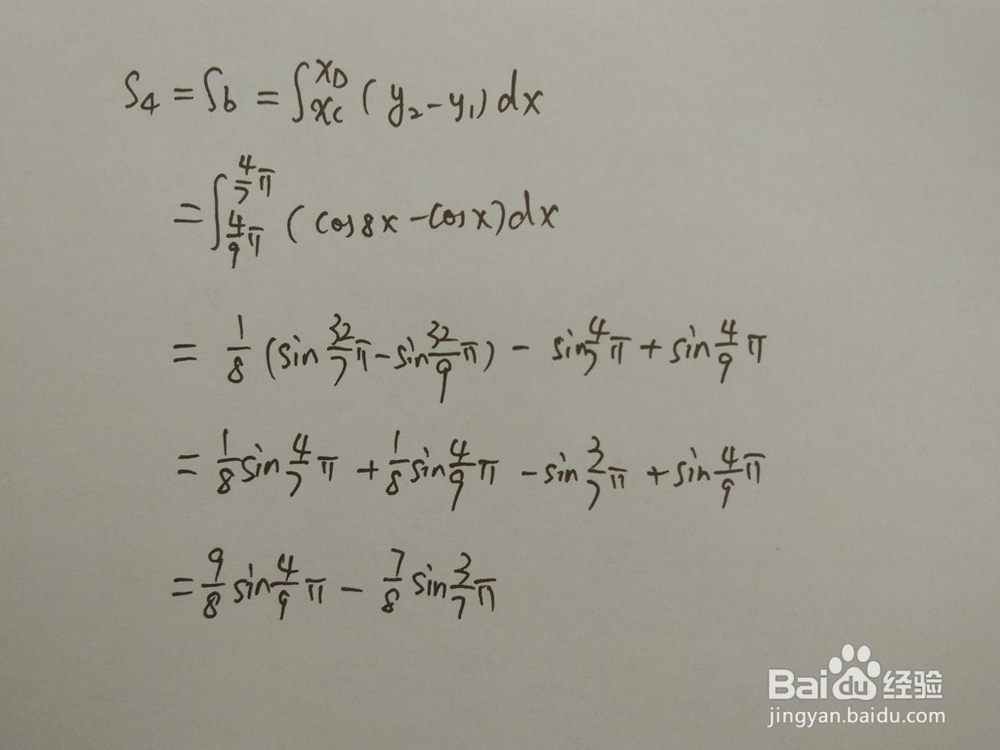 S₄ = S₆ = ∫_{x_C}^{x_D} (y₂ - y₁) dx
= ∫_{4/9 π}^{4/7 π} (cos8x - cosx) dx
= 1/8 (sin 32/7 π - sin 32/9 π) - sin 4/7 π + sin 4/9 π
= 1/8 sin 4/7 π + 1/8 sin 4/9 π - sin 3/7 π + sin 4/9 π
= 9/8 sin 4/9 π - 7/8 sin 3/7 π
Baidu经验
jingyan.baidu.com